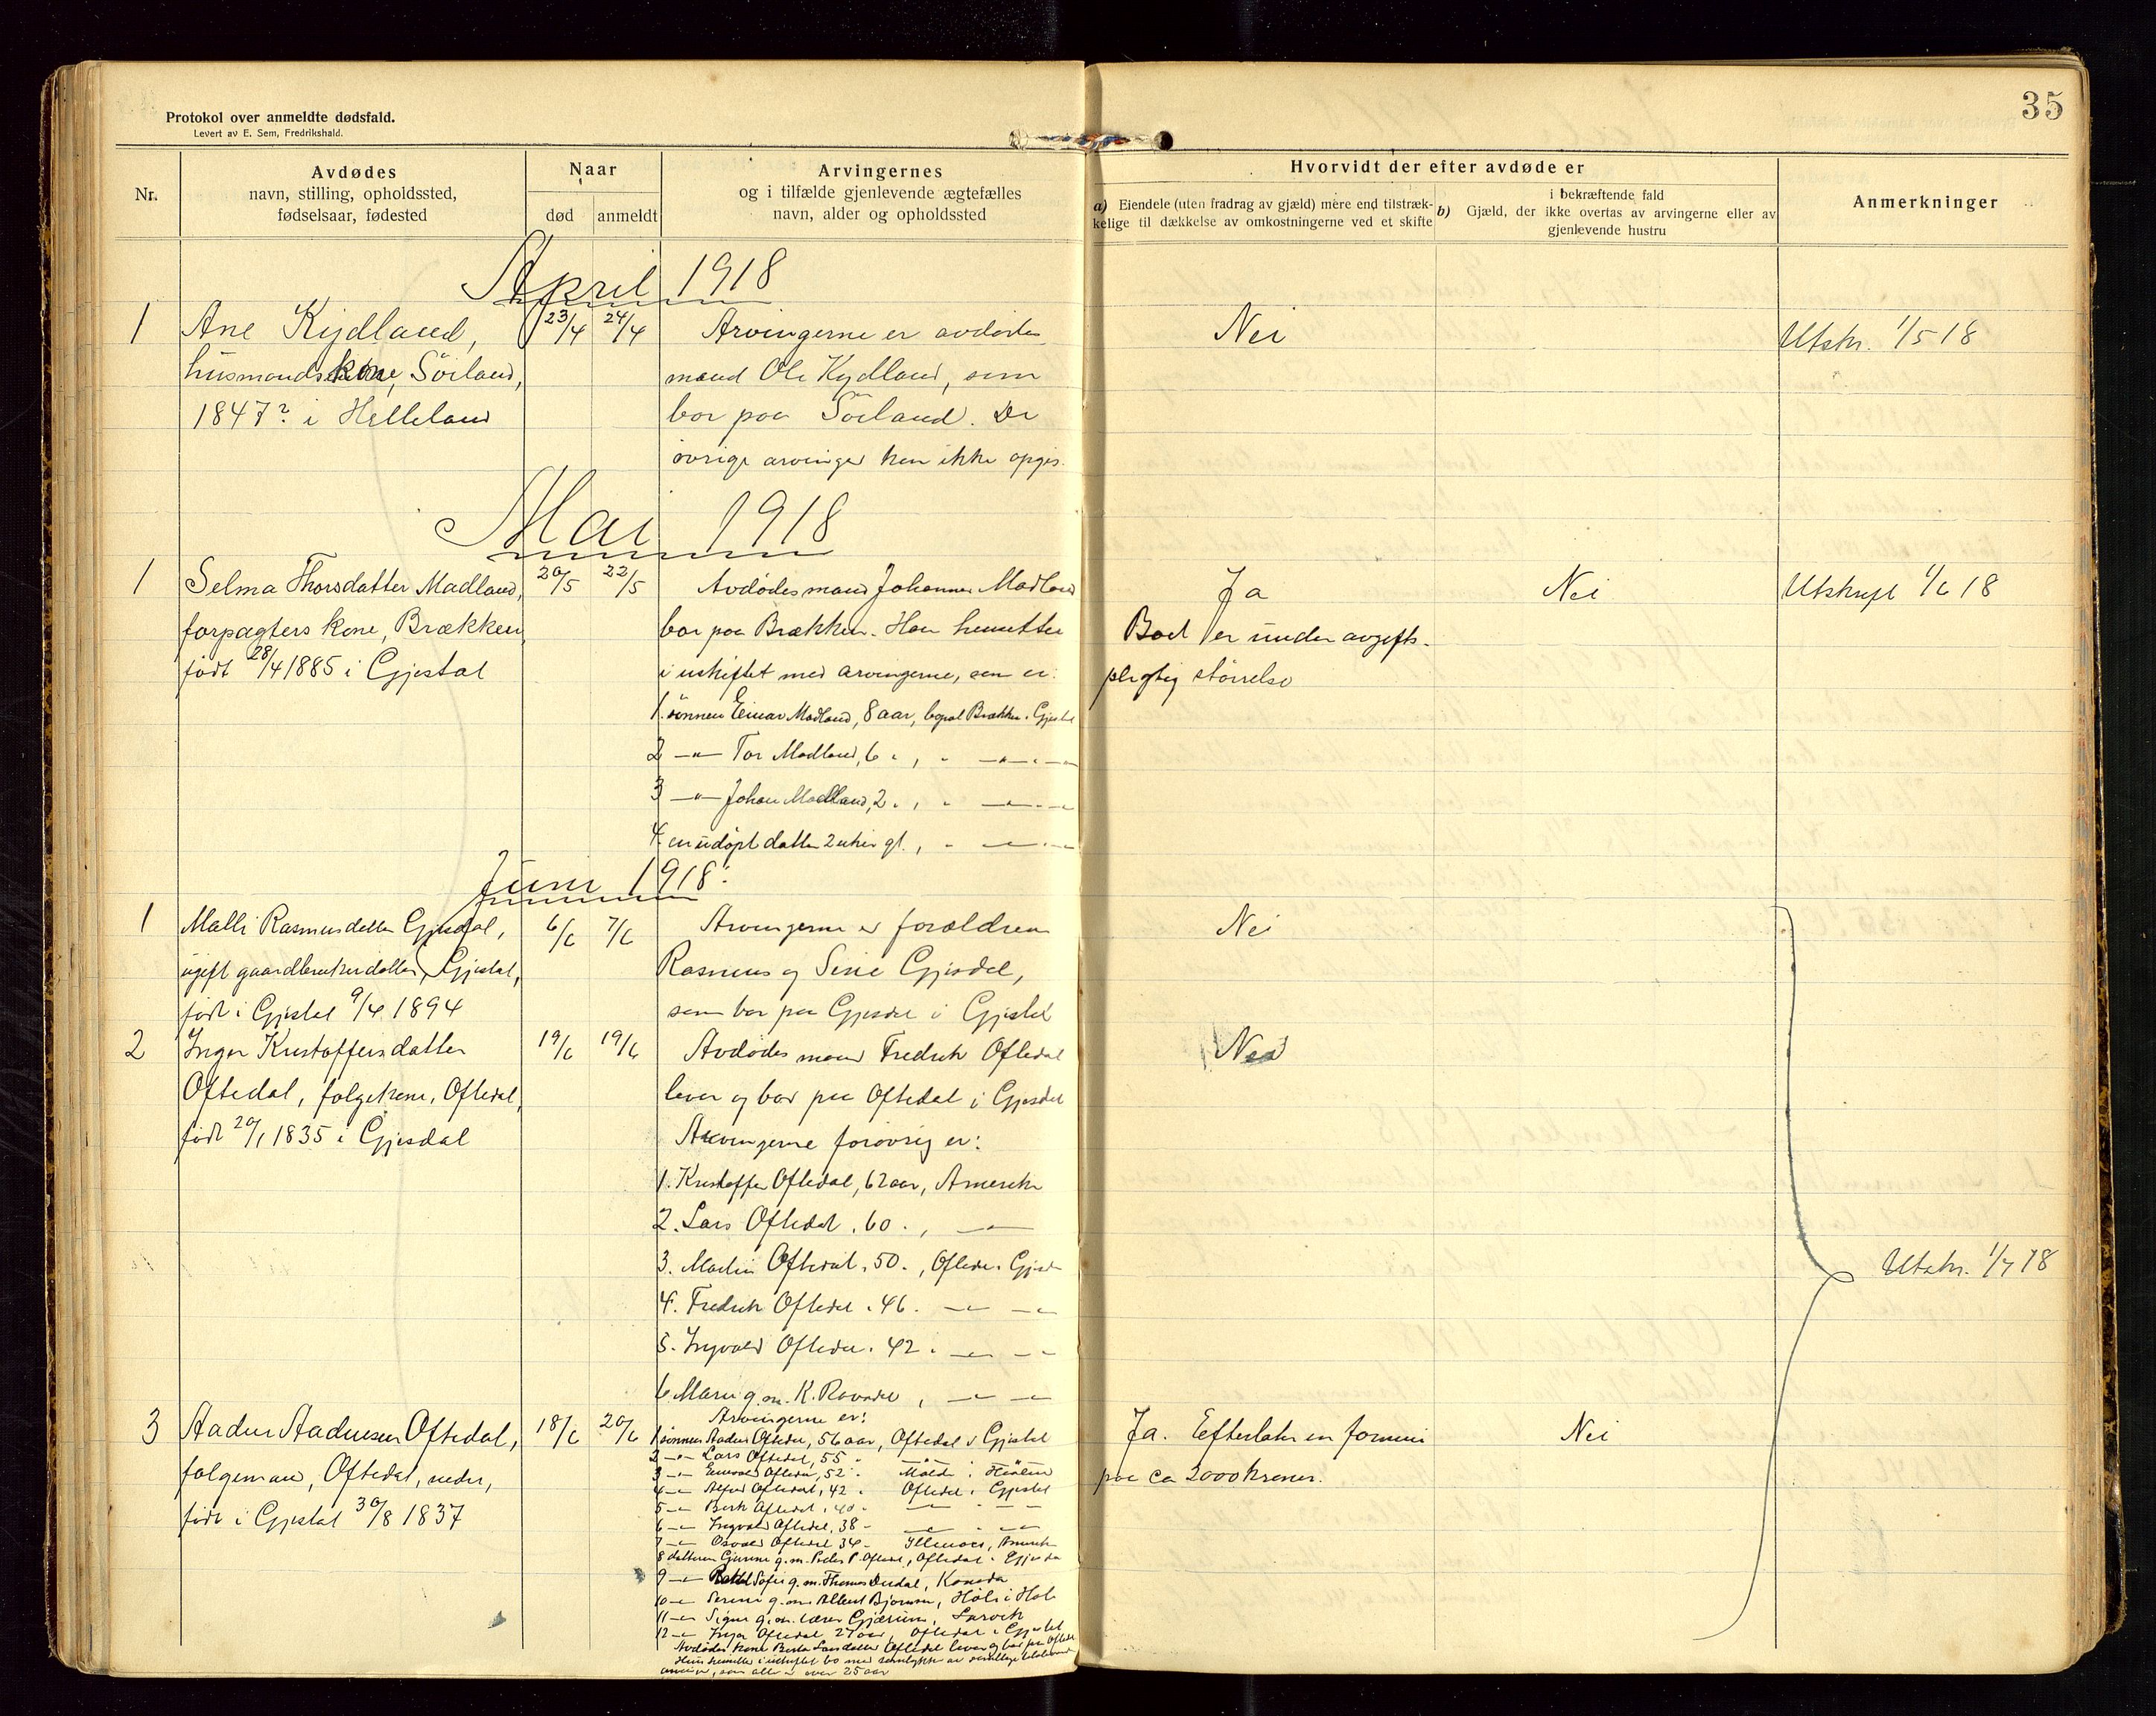 35
Protokol over anmeldte dødsfald.
Levert av E. Sem, Fredrikshald.
Nr.
Avdødes
navn, stilling, opholdssted,
fødselsaar, fødested
Naar
død
anmeldt
Arvingernes
og i tilfælde gjenlevende ægtefælles
navn, alder og opholdssted
Hvorvidt der efter avdøde er
a) Eiendele (uten fradrag av gjæld) mere end tilstræk-
kelige til dækkelse av omkostningerne ved et skifte
i bekræftende fald
b) Gjæld, der ikke overtas av arvingerne eller av
gjenlevende hustru
Anmerkninger
April 1918
1 Ane Kydland, 23/4 24/4 Arvingerne er avdødes Nei Utskr. 1/5 18
husmandskone, Sörland, mand Ole Kydland, som
1847? i Helleland bor paa Sörland. De
övrige arvinger kan ikke opgis.
Mai 1918
1 Selma Thorsdatter Madland, 20/5 22/5 Avdødes mand Johannes Madland Ja Nei Utskrift 1/6 18
forpagters kone, Brækken, bor paa Brækken. Han hensitter Boet er under avgifts-
født 28/4 1885 i Gjestal i uskiftet med arvingerne, som er: pligtig störrelse
1. sönnen Einar Madland, 8 aar, bopæl Brækken i Gjestal
2 —"— Tor Madland, 6 " , " —"—"—
3 —"— Johan Madland, 2 " , " —"—"—
4. en udöpt datter 2 uker gl. , " —"—"—
Juni 1918.
1 Malli Rasmusdatter Gjesdal, 6/6 7/6 Arvingerne er forældrene Nei
ugift gaardbrukerdatter, Gjestal, Rasmus og Sine Gjesdal,
født i Gjestal 9/4 1894 som bor paa Gjesdal i Gjestal
2 Inger Kristoffersdatter 19/6 19/6 Avdødes mand Fredrik Oftedal Nei
Oftedal, folgekone, Oftedal, lever og bor paa Oftedal i Gjesdal
født 20/1 1835 i Gjesdal Arvingerne forövrig er:
1. Kristoffer Oftedal, 62 aar, Amerika
2. Lars Oftedal " 60 " , —"—
3. Martin Oftedal " 50 " , Oftedal i Gjesdal Utskr. 1/7 18
4. Fredrik Oftedal " 46 " —"— —"—
5. Ingvald Oftedal " 42 " —"— —"—
6. Marie g. m. K. , —"— —"—
3 Aadne Aadnesen Oftedal, 18/6 20/6 Arvingerne er: Ja. Efterlater en formue Nei
folgemand, Oftedal, nedre, 1 sönnen Aadne Oftedal, 56 aar, Oftedal i Gjestal paa ca 2000 kroner.
født i Gjestal 30/8 1837 2 —"— Lars Oftedal, 55 "
3 —"— Oftedal, 52 "
4 —"— Alfred Oftedal, 42 " Oftedal i Gjestal
5 —"— Oftedal, 40 " —"— " —"—
6 —"— Ingvald Oftedal, 38 " —"— " —"—
7 —"— Osvald Oftedal 34 " Illinois, Amerika
8 datteren g. m. Peder P. Oftedal, Oftedal i Gjesdal
9 —"— Sofie g. m. Thomas Dirdal, Kanada
10 —"— Serine g. m. Albert Bjornsen, Höle i Höle
11 —"— Signe g. m. lærer Gjærum, Larvik
12 —"— Inger Oftedal 27 aar, Oftedal i Gjestal
Avdødes kone Berta Larsdatter Oftedal lever og bor paa Oftedal
Hun hensitter i uskiftet bo med samtykke av samtlige
arvinger, som alle er over 25 aar